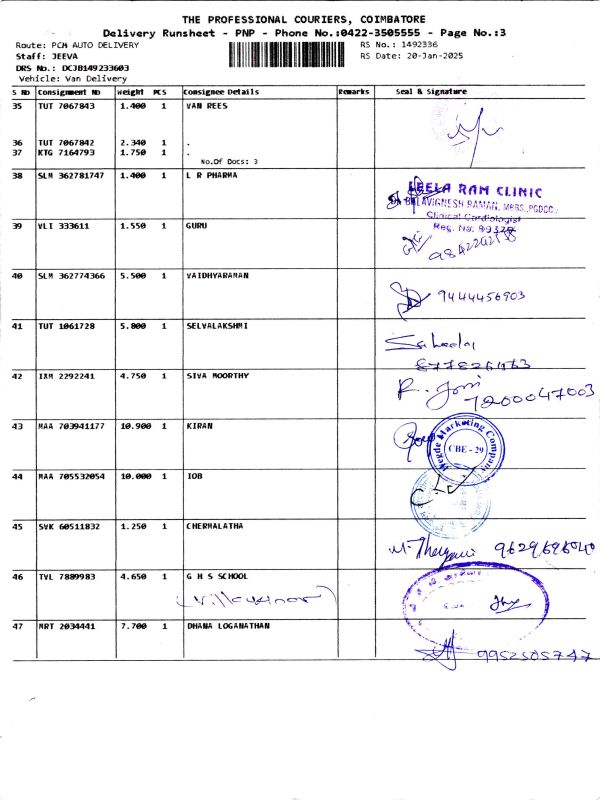 THE PROFESSIONAL COURIERS, COIMBATORE
Delivery Runsheet - PNP - Phone No.:0422-3505555 - Page No.:3
Route: PCM AUTO DELIVERY RS No.: 1492336
Staff: JEEVA RS Date: 20-Jan-2025
DRS No.: DCJB149233603
Vehicle: Van Delivery
S No Consignment No Weight PCS Consignee Details Remarks Seal & Signature
35 TUT 7067843 1.400 1 VAN REES
36 TUT 7067842 2.340 1 .
37 KTG 7164793 1.750 1 .
No.Of Docs: 3
38 SLM 362781747 1.400 1 L R PHARMA
LEELA RAM CLINIC
BALAVIGNESH RAMAN, MBBS.,PGDCC.,
Clinical Cardiologist
Reg. No: 89320
39 VLI 333611 1.550 1 GURU
40 SLM 362774366 5.500 1 VAIDHYARAMAN
9444456903
41 TUT 1061728 5.800 1 SELVALAKSHMI
42 IXM 2292241 4.750 1 SIVA MOORTHY
7200047003
43 MAA 703941177 10.900 1 KIRAN
Hegde Marketing Company
CBE - 29
44 MAA 705532054 10.000 1 IOB
45 SVK 60511832 1.250 1 CHERMALATHA
46 TVL 7889983 4.650 1 G H S SCHOOL
47 MRT 2034441 7.700 1 DHANA LOGANATHAN
9952505747